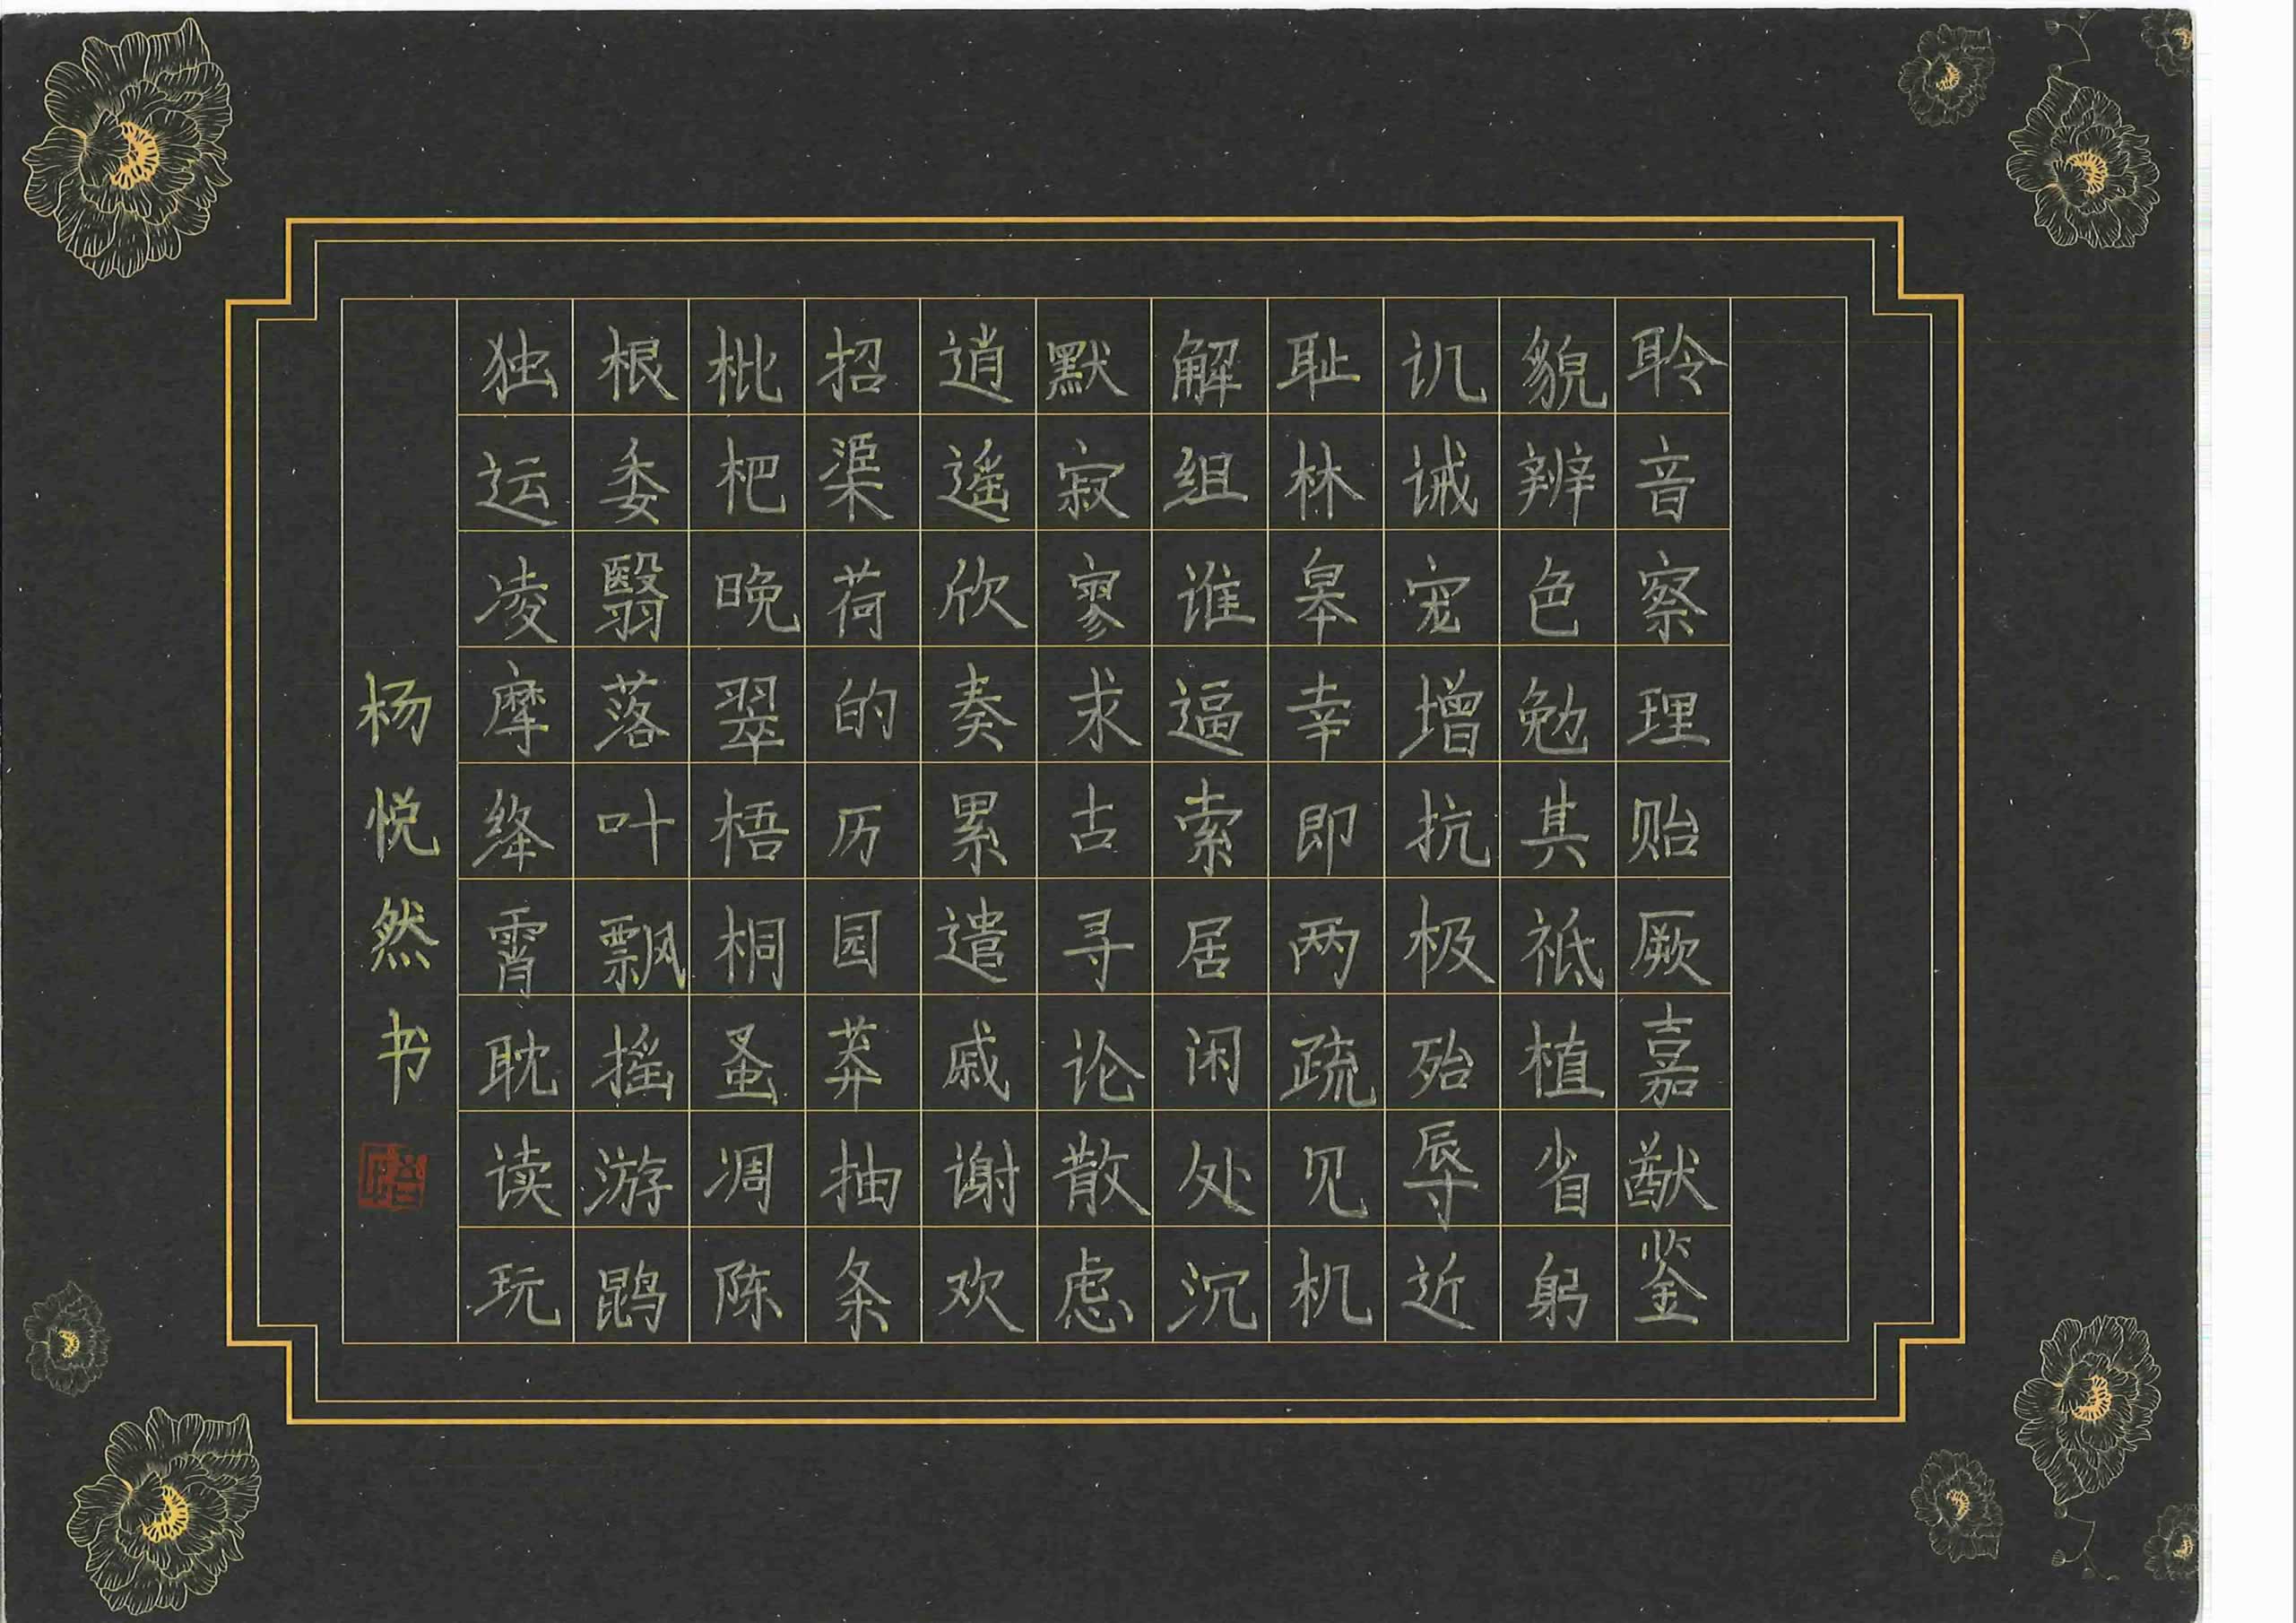 聆音察理贻厥嘉猷鉴
貌辨色勉其祗植省躬
讥诫宠增抗极殆辱近
耻林皋幸即两疏见机
解组谁逼索居闲处沉
默寂寥求古寻论散虑
逍遥欣奏累遣戚谢欢
招渠荷的历园莽抽条
枇杷晚翠梧桐蚤凋陈
根委翳落叶飘摇游鹍
独运凌摩绛霄耽读玩
杨悦然书